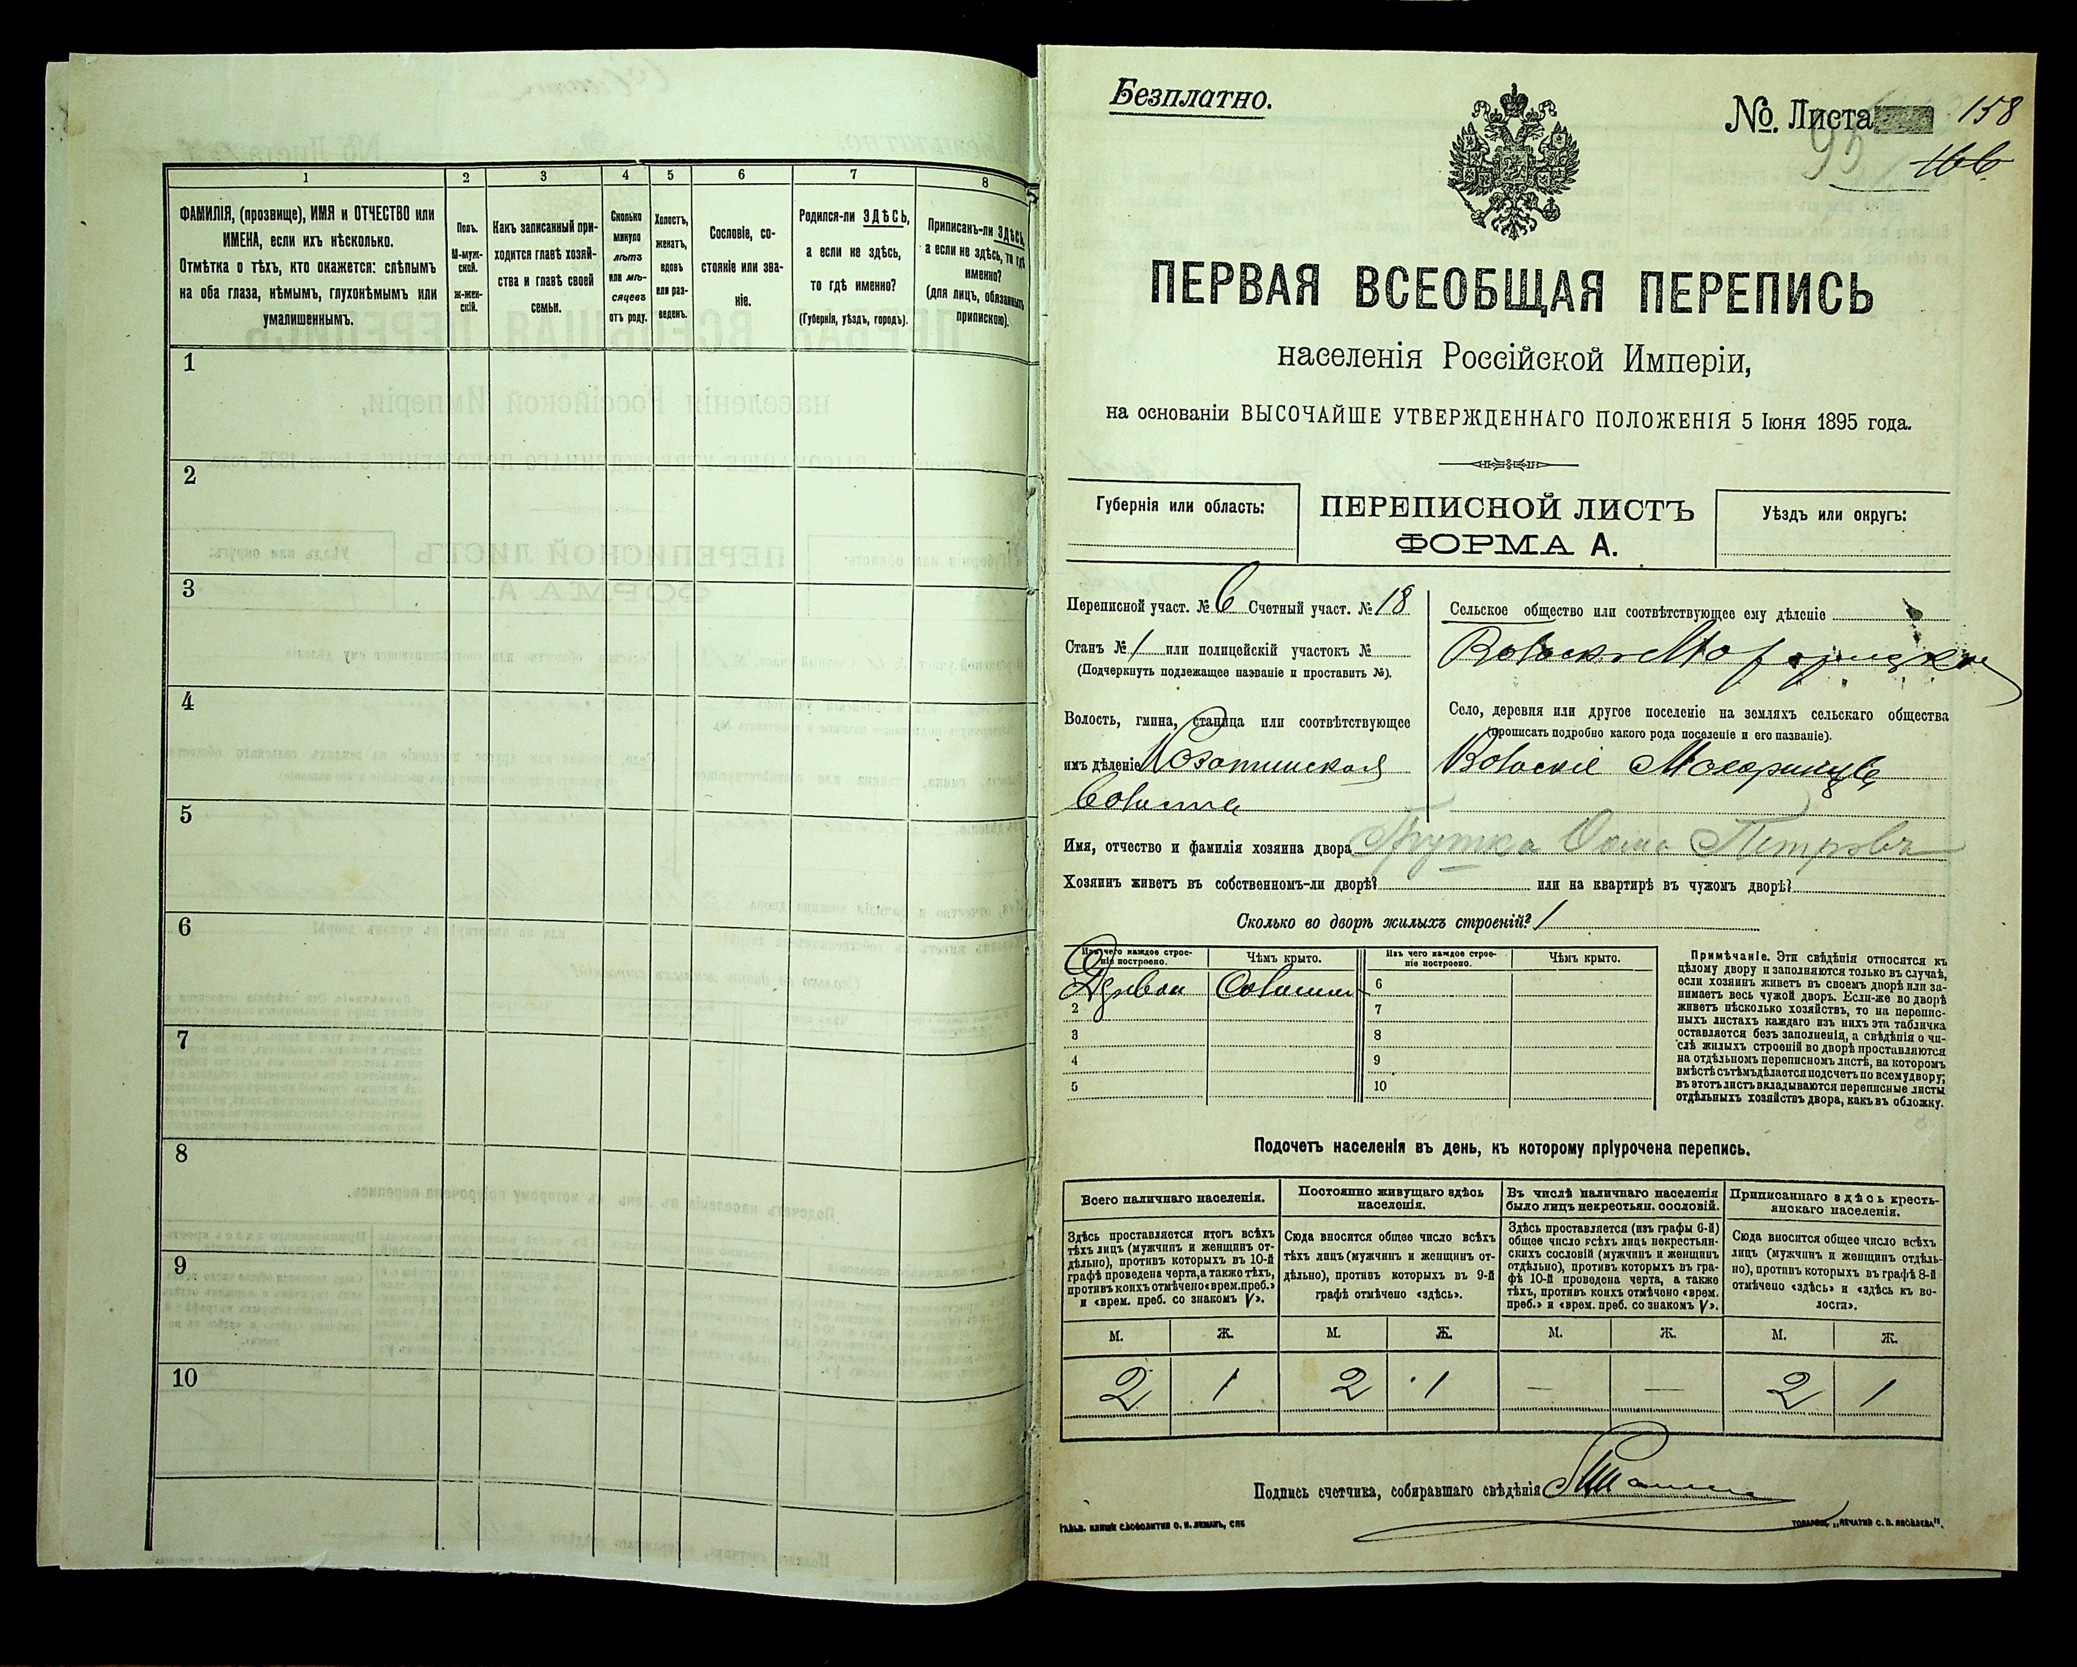 1
2
3
4
5
6
7
8
ФАМИЛІЯ, (прозвище), ИМЯ и ОТЧЕСТВО или
ИМЕНА, если ихъ нѣсколько.
Отмѣтка о тѣхъ, кто окажется: слѣпымъ
на оба глаза, нѣмымъ, глухонѣмымъ или
умалишеннымъ.
Полъ.
М-муж-
ской.
Ж-жен-
скій.
Какъ записанный при-
ходится главѣ хозяй-
ства и главѣ своей
семьи.
Сколько
минуло
лѣтъ
или мѣ-
сяцевъ
отъ роду.
Холостъ,
женатъ,
вдовъ
или раз-
веденъ.
Сословіе, со-
стояніе или зва-
ніе.
Родился-ли ЗДѢСЬ,
а если не здѣсь,
то гдѣ именно?
(Губернія, уѣздъ, городъ).
Приписанъ-ли ЗДѢСЬ,
а если не здѣсь, то гдѣ
именно?
(для лицъ, обязанныхъ
припискою).
1
2
3
4
5
6
7
8
9
10
Безплатно.
№. Листа 158
95
166
ПЕРВАЯ ВСЕОБЩАЯ ПЕРЕПИСЬ
населенія Россійской Имперіи,
на основаніи ВЫСОЧАЙШЕ УТВЕРЖДЕННАГО ПОЛОЖЕНІЯ 5 Іюня 1895 года.
Губернія или область:
ПЕРЕПИСНОЙ ЛИСТЪ
ФОРМА А.
Уѣздъ или округъ:
Переписной участ. № 6 Счетный участ. № 18
Станъ № 1 или полицейскій участокъ №
(Подчеркнуть подлежащее названіе и проставить №).
Волость, гмина, станица или соотвѣтствующее
имъ дѣленіе
Сельское общество или соотвѣтствующее ему дѣленіе
Село, деревня или другое поселеніе на земляхъ сельскаго общества
(прописать подробно какого рода поселеніе и его названіе).
Имя, отчество и фамилія хозяина двора Петровъ
Хозяинъ живетъ въ собственномъ-ли дворѣ? или на квартирѣ въ чужомъ дворѣ?
Сколько во дворѣ жилыхъ строеній? 1
Изъ чего каждое строе-
ніе построено.
Чѣмъ крыто.
Изъ чего каждое строе-
ніе построено.
Чѣмъ крыто.
6
2
7
3
8
4
9
5
10
Примѣчаніе. Эти свѣдѣнія относятся къ
цѣлому двору и заполняются только въ случаѣ,
если хозяинъ живетъ въ своемъ дворѣ или за-
нимаетъ весь чужой дворъ. Если-же во дворѣ
живетъ нѣсколько хозяйствъ, то на перепис-
ныхъ листахъ каждаго изъ нихъ эта табличка
оставляется безъ заполненія, а свѣдѣнія о чи-
слѣ жилыхъ строеній во дворѣ проставляются
на отдѣльномъ переписномъ листѣ, на которомъ
вмѣстѣ съ тѣмъ дѣлается подсчетъ по всему двору;
въ этотъ листъ вкладываются переписные листы
отдѣльныхъ хозяйствъ двора, какъ въ обложку.
Подсчетъ населенія въ день, къ которому пріурочена перепись.
Всего наличнаго населенія.
Постоянно живущаго здѣсь
населенія.
Въ числѣ наличнаго населенія
было лицъ некрестьян. сословій.
Приписаннаго здѣсь кресть-
янскаго населенія.
Здѣсь проставляется итогъ всѣхъ
тѣхъ лицъ (мужчинъ и женщинъ от-
дѣльно), противъ которыхъ въ 10-й
графѣ проведена черта, а также тѣхъ,
противъ коихъ отмѣчено «врем. преб.»
и «врем. преб. со знакомъ V».
Сюда вносится общее число всѣхъ
тѣхъ лицъ (мужчинъ и женщинъ от-
дѣльно), противъ которыхъ въ 9-й
графѣ отмѣчено «здѣсь».
Здѣсь проставляется (изъ графы 6-й)
общее число всѣхъ лицъ некрестьян-
скихъ сословій (мужчинъ и женщинъ
отдѣльно), противъ которыхъ въ гра-
фѣ 10-й проведена черта, а также
тѣхъ, противъ коихъ отмѣчено «врем.
преб.» и «врем. преб. со знакомъ V».
Сюда вносится общее число всѣхъ
лицъ (мужчинъ и женщинъ отдѣль-
но), противъ которыхъ въ графѣ 8-й
отмѣчено «здѣсь» и «здѣсь къ во-
лости».
М. Ж. М. Ж. М. Ж. М. Ж.
2 1 2 1 — — 2 1
Подпись счетчика, собиравшаго свѣдѣнія